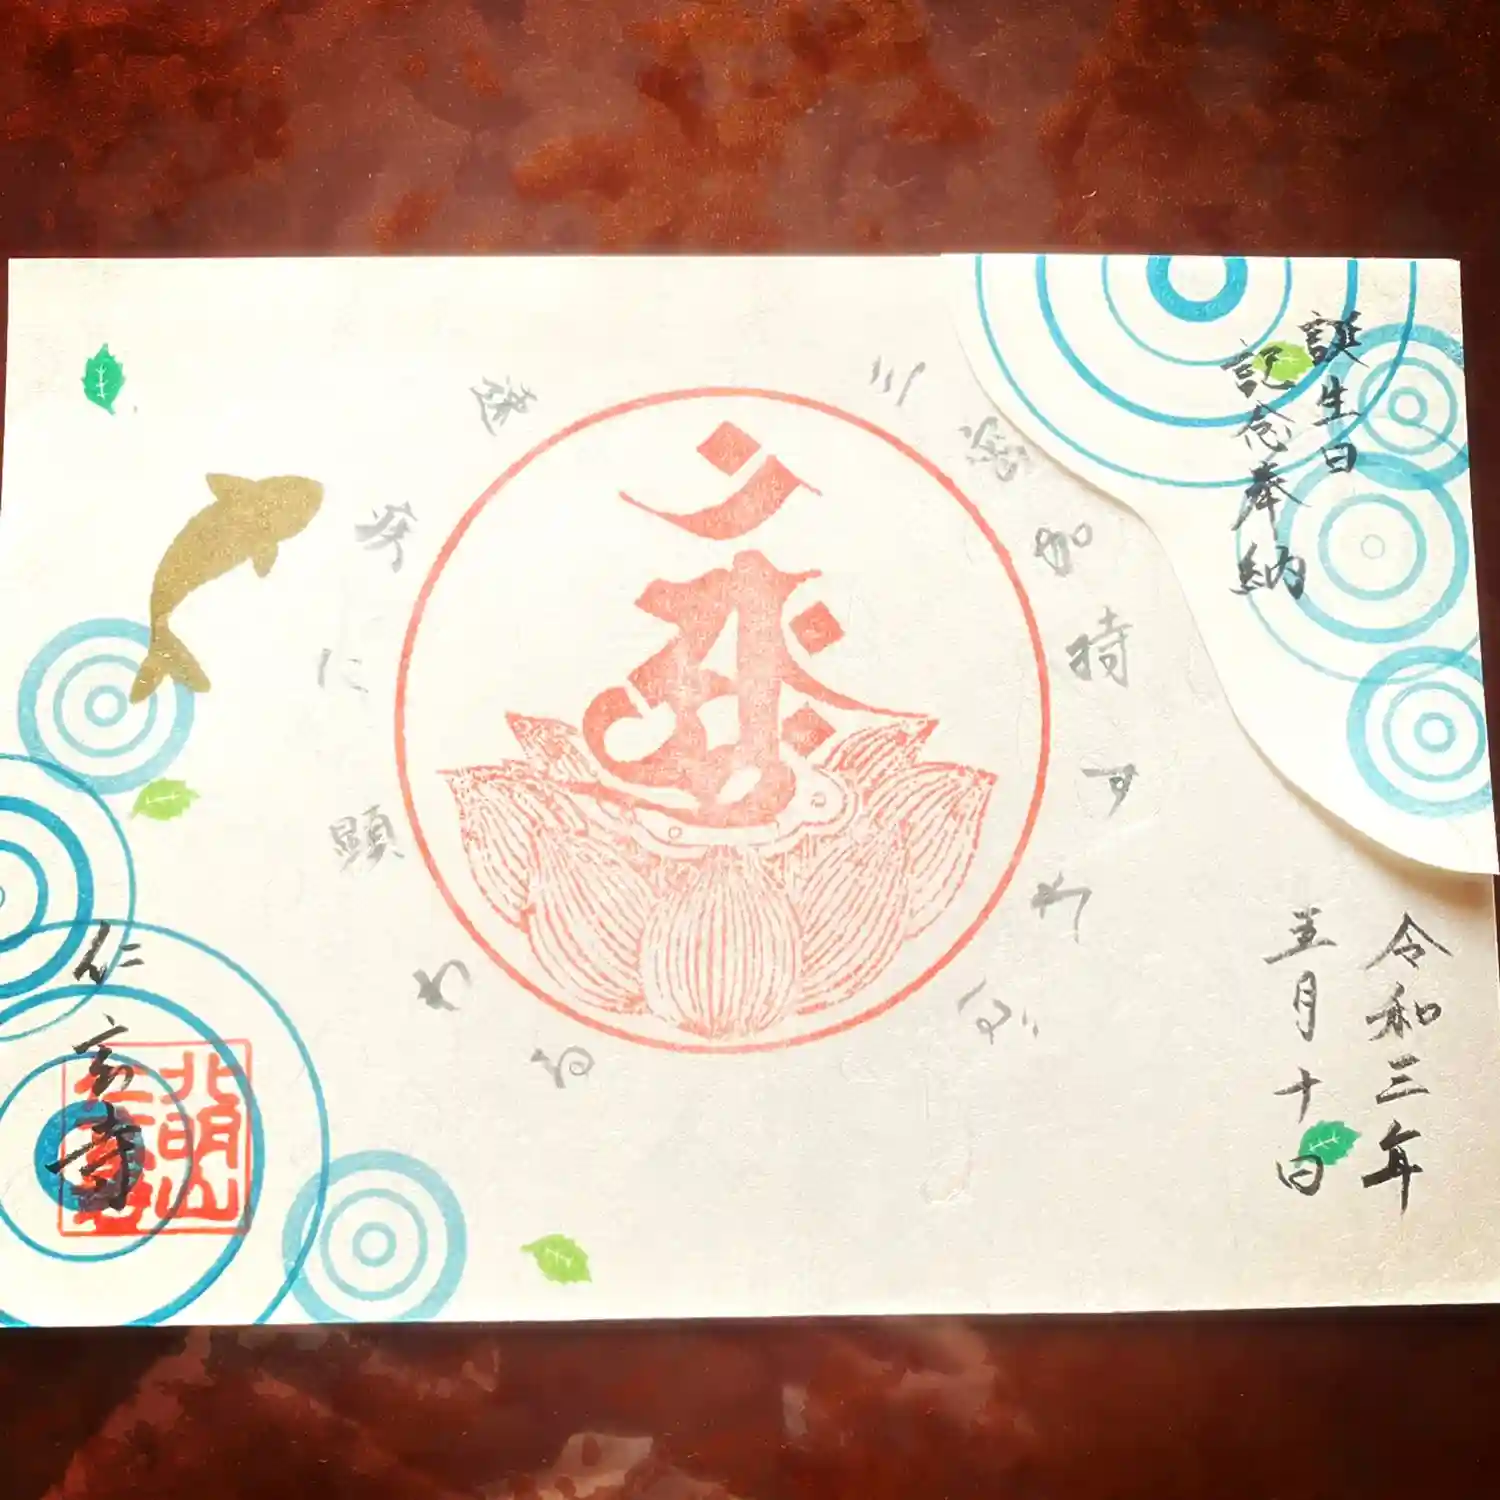 誕生日
記念奉納
三密加持すれば
速疾に顕わる
令和三年
五月十日
仁玄寺
北明山